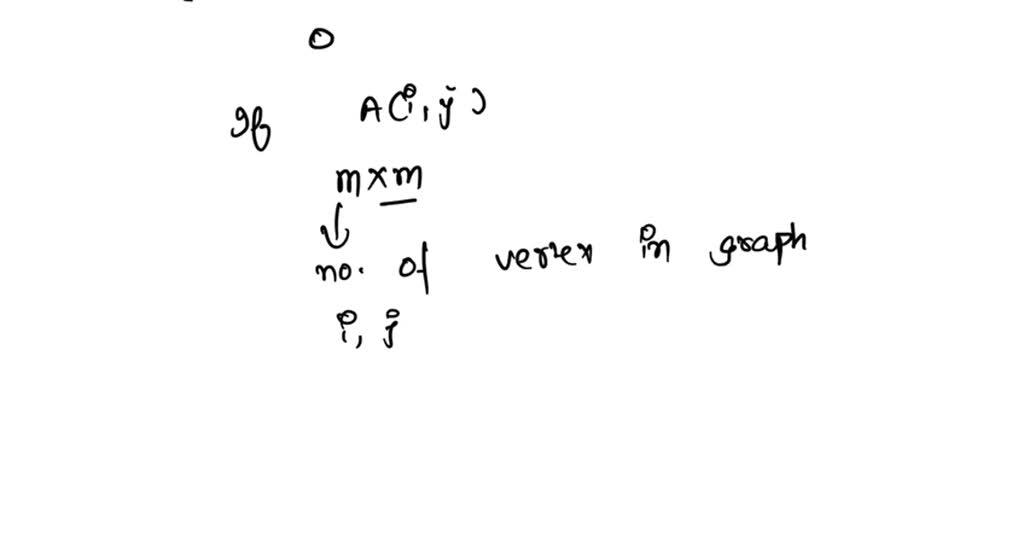 0
If A(i, j)
m x m
no. of vertex in graph
i, j